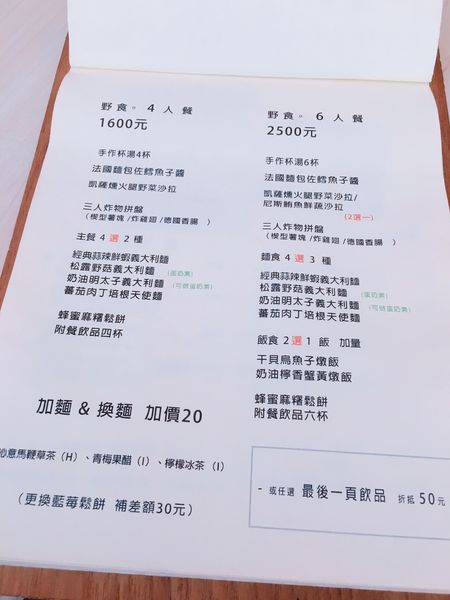 野食。4人餐
1600元
手作杯湯4杯
法國麵包佐鱈魚子醬
凱薩燻火腿野菜沙拉
三人炸物拼盤
（楔型薯塊/炸雞翅/德國香腸 ）
主餐 4 選 2 種
經典蒜辣鮮蝦義大利麵
松露野菇義大利麵 （蛋奶素）
奶油明太子義大利麵 （可做蛋奶素）
蕃茄肉丁培根天使麵
蜂蜜麻糬鬆餅
附餐飲品四杯
野食。6人餐
2500元
手作杯湯6杯
法國麵包佐鱈魚子醬
凱薩燻火腿野菜沙拉/
尼斯鮪魚鮮蔬沙拉
（2選一）
三人炸物拼盤
（楔型薯塊/炸雞翅/德國香腸 ）
麵食 4 選 3 種
經典蒜辣鮮蝦義大利麵
松露野菇義大利麵 （蛋奶素）
奶油明太子義大利麵 （可做蛋奶素）
蕃茄肉丁培根天使麵
飯食 2 選 1 飯 加量
干貝烏魚子燉飯
奶油檸香蟹黃燉飯
蜂蜜麻糬鬆餅
附餐飲品六杯
加麵 & 換麵 加價20
沁意馬鞭草茶（H）、青梅果醋（I）、檸檬冰茶（I）
（更換藍莓鬆餅 補差額30元）
- 或任選 最後一頁飲品 折抵 50元